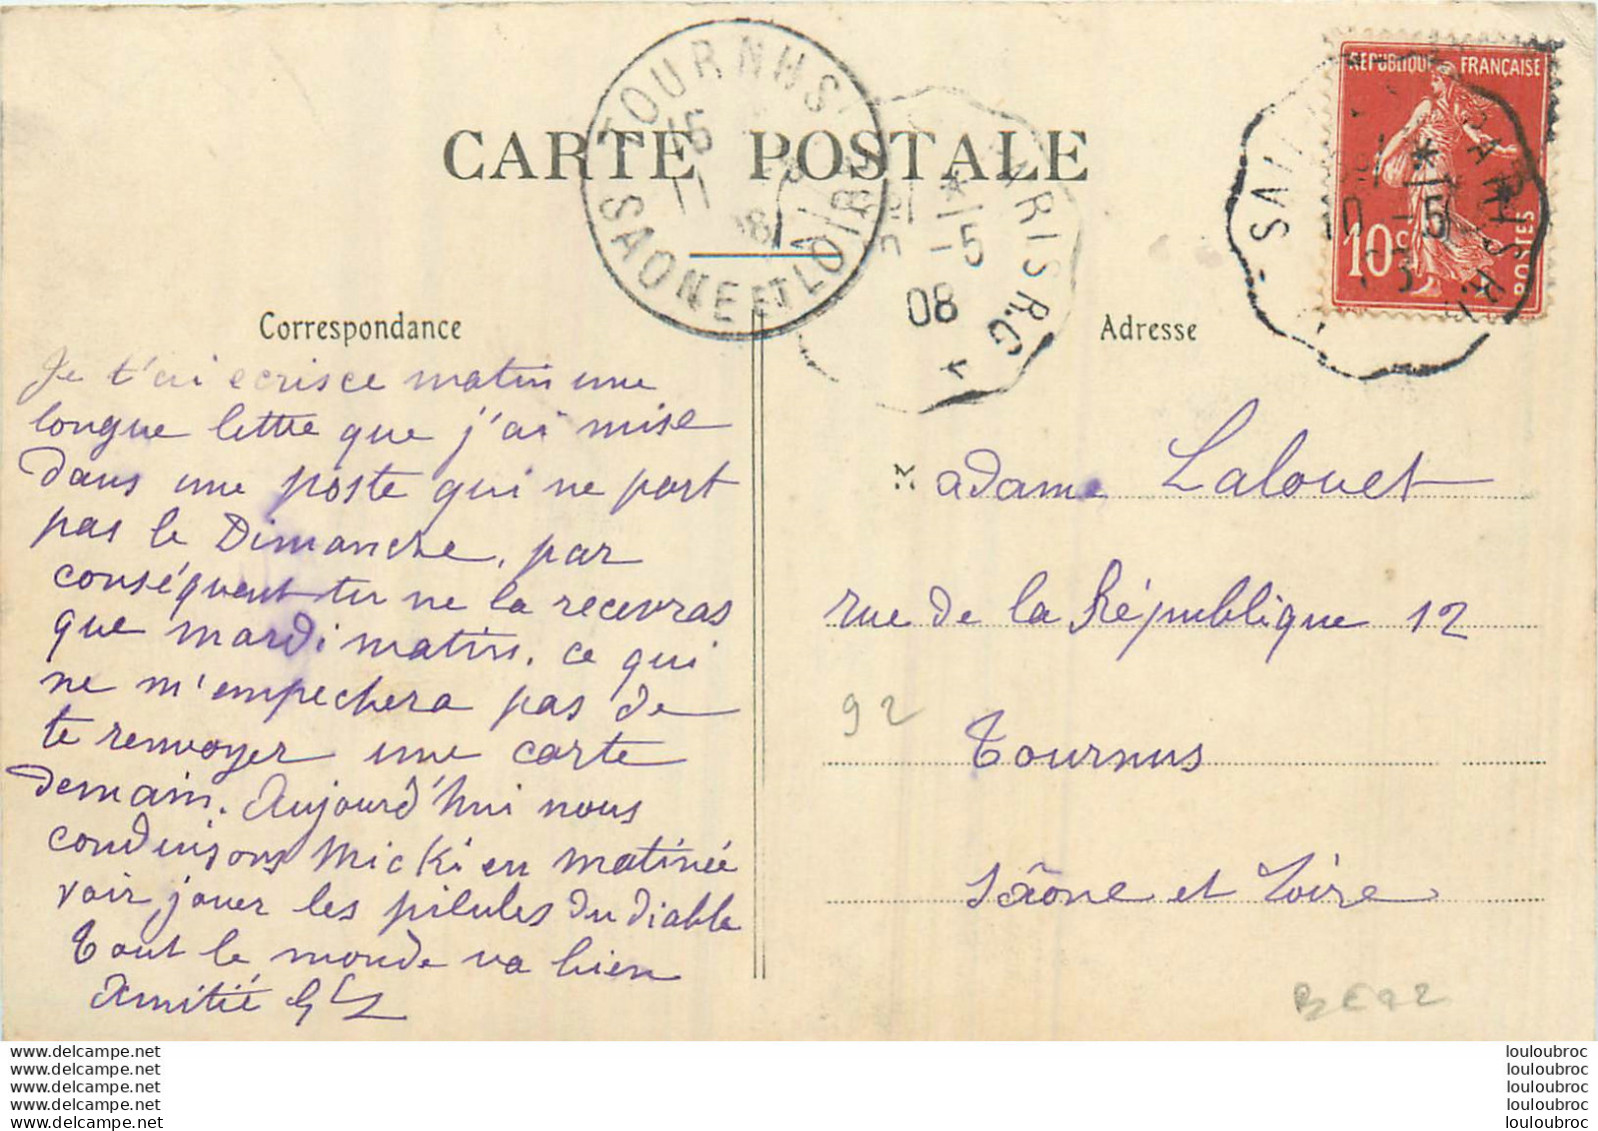 CARTE POSTALE
TOURNUS
15
11 5
08
SAONE ET LOIRE
PARIS R.G
-5
08
REPUBLIQUE FRANÇAISE
10c
POSTES
10 -5
Correspondance
Adresse
Je t'ai ecris ce matin une
longue lettre que j'ai mise
dans une poste qui ne part
pas le Dimanche, par
conséquent tu ne la recevras
que mardi matin. ce qui
ne m'empechera pas de
te renvoyer une carte
demain. Aujourd'hui nous
conduisons Micki en matinée
voir jouer les pilules du diable
Tout le monde va bien
Amitié
Madame Lalouet
rue de la République 12
Tournus
Saône et Loire
92
BE92
www.delcampe.net
www.delcampe.net
www.delcampe.net
www.delcampe.net
www.delcampe.net
louloubroc
louloubroc
louloubroc
louloubroc
louloubroc